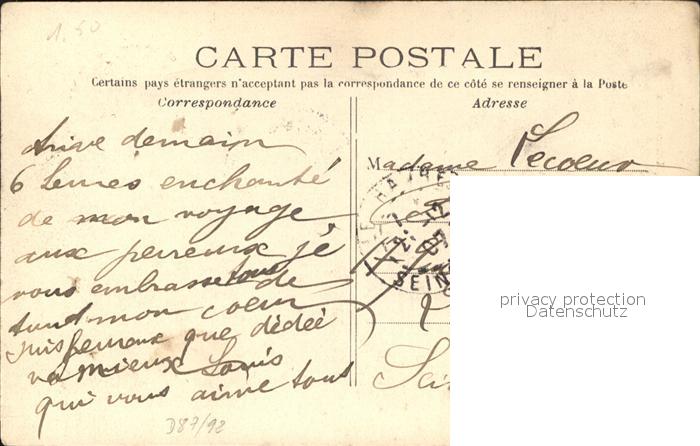 1.50
CARTE POSTALE
Certains pays étrangers n'acceptant pas la correspondance de ce côté se renseigner à la Poste
Correspondance
Adresse
Arive demain
6 heures enchanté
de mon voyage
aux perreux je
vous embrasse tous de
tout mon coeur
suis heureux que dédée
va mieux Louis
qui vous aime tout
Madame Lecoeur
SEIN
privacy protection
Datenschutz
D87/92